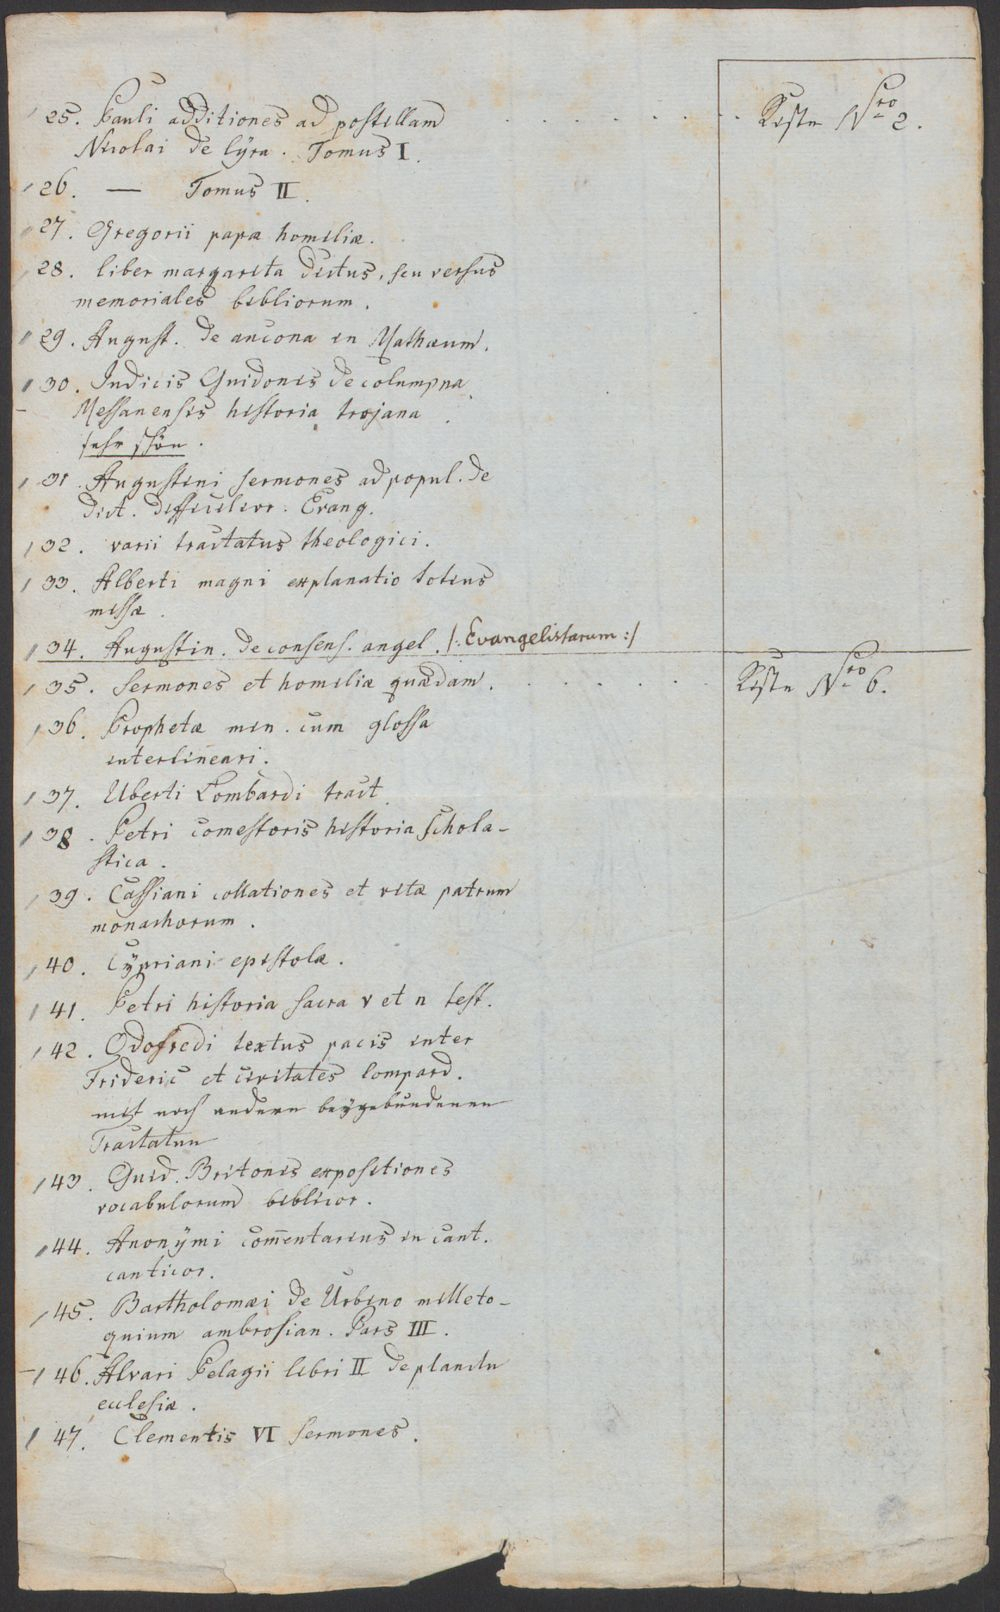 25. Pauli additiones ad postillam . . . . . . . . Kiste Nro 2.
Nicolai de lÿra. Tomus I.
26. — Tomus II.
27. Gregorii papæ homiliæ.
28. liber margarita dictus, seu versus
memoriales bibliorum.
29. August. de ancona in Mathæum.
30. Judicis Guidonis de columpna
Messanensis historia trojana.
sehr schön.
31. Augustini sermones ad popul. de
dict. difficilior. Evang.
32. varii tractatus theologici.
33. Alberti magni explanatio totius
missæ.
34. Augustin. de consens. angel. /: Evangelistarum :/
35. Sermones et homiliæ quædam. . . . . . . Kiste Nro 6.
36. Prophetæ min. cum glossa
interlineari.
37. Uberti Lombardi tract.
38. Petri comestoris historia schola-
stica.
39. Cassiani collationes et vitæ patrum
monachorum.
40. Cÿpriani epistolæ.
41. Petri historia sacra v et n test.
42. Odofredi textus pacis inter
Frideric et civitates lompard.
mit noch andern beÿgebundenen
Tractaten
43. Guid. Britonis expositiones
vocabulorum biblicor.
44. Anonÿmi com̄entarius in cant.
canticor.
45. Bartholomæi de Urbino milleto-
quium ambrosian. Pars III.
46. Alvari Pelagii libri II de planctu
ecclesiæ.
47. Clementis VI sermones.